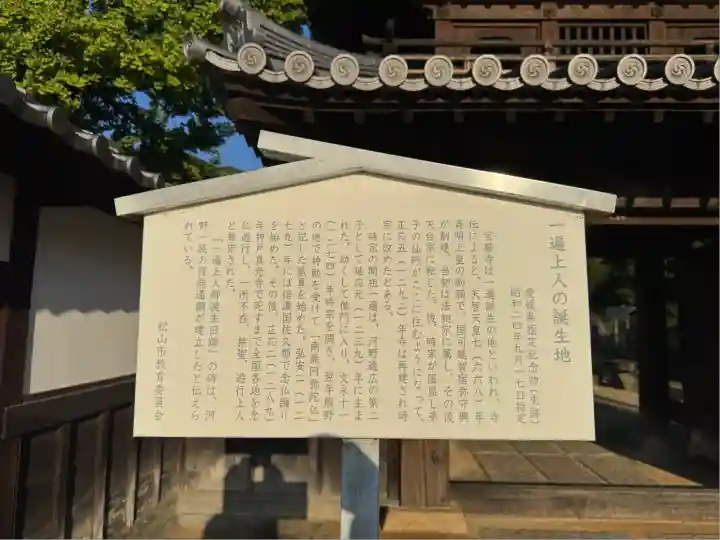 一遍上人の誕生地
愛媛県指定記念物(史跡)
昭和二四年九月一七日指定
宝厳寺は一遍誕生の地といわれ、寺
伝によると、天智天皇七(六六八)年
斉明上皇の勅願で、国司越智宿弥守興
が創建、当初は法相宗に属し、その後
天台宗に転じた。後、時宗が區風し弟
子の仙阿がここに住むようになって、
正応五(一二九二)年寺は再建され時
宗に改めたとある。
時宗の開祖一遍は、河野通広の第二
子として延応元(一二三九)年に生ま
れた。幼くして仏門に入り、文永十一
(一二七四)年時宗を開き、翌年熊野
の地で神勅を受けて「南無阿弥陀仏」
と記した賦算を始めた。弘安二(一二
七九)年には信濃国佐久郡で念仏踊り
を始めた。その後、正応二(一二八九)
年神戸真光寺で死すまで全国各地を念
仏遊行し、一所不在、捨聖、遊行上人
と尊崇された。
「一遍上人御誕生旧跡」の碑は、河
野一族の得能通綱が建立したと伝えら
れている。
松山市教育委員会